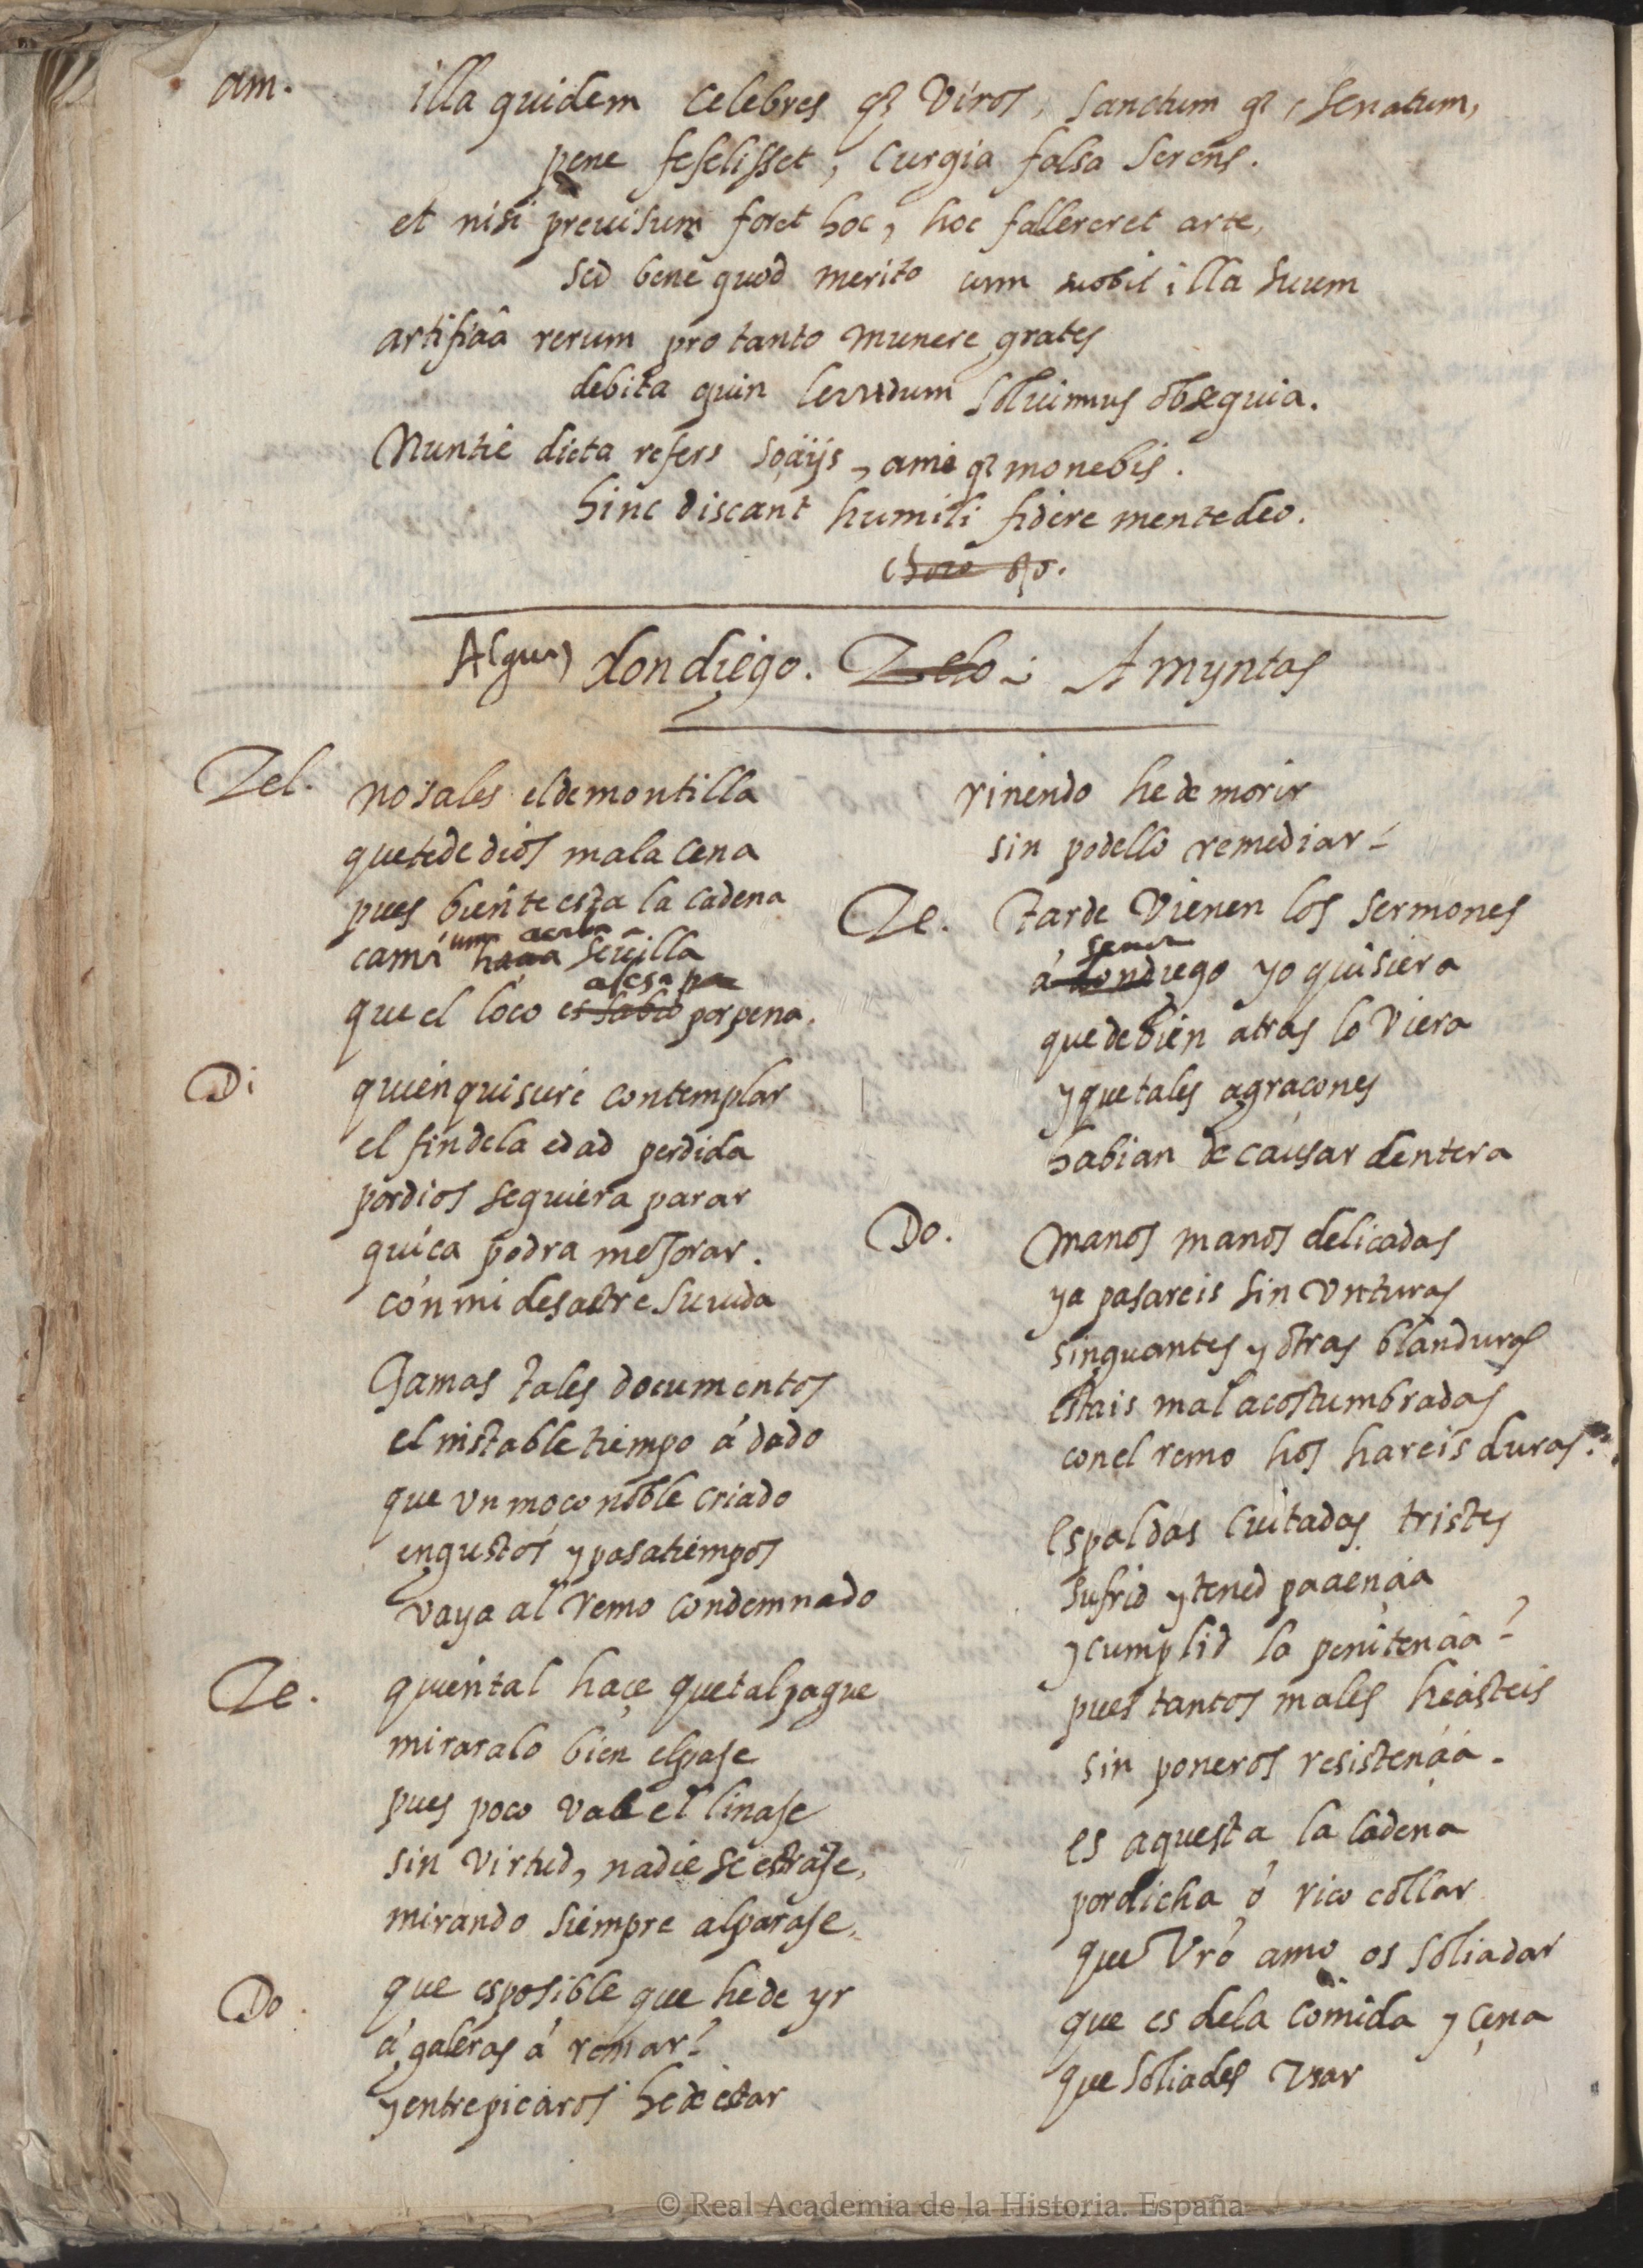 am. illa quidem celebres q3 viros, sanctum q3, senatum,
pene fefelisset, curgia falsa serens.
et nisi preuisum foret hoc, hoc fallereret arte,
sed bene quod merito cum subit illa suum
artificiâ rerum pro tanto munere grates
debita quin soluimus obsequia.
Nuntie dicta refers socijs, ame q3 monebis.
hinc discant humili fidere mente deo.
choro
Alguº don diego. Zelo. Amyntas
Zel. no sales el de montilla
que te de dios mala cena
pues bien te esta la cadena
cami haçia seuilla
que el loco es sabio por pena.
asesa pr
Di quien quisiere contemplar
el fin de la edad perdida
por dios se quiera parar
quiça podra mejorar.
con mi desastre su uida
Jamas tales documentos
el instable tiempo á dado
que vn moço noble criado
en gustos y pasatiempos
vaya al remo condemnado
Ze. quien tal haçe que tal pague
miraralo bien el paje
pues poco vale el linaje
sin virtud, nadie se estraje,
mirando siempre al paraje.
Do. que es posible que he de yr
á galeras á remar?
y entre picaros he de estar
rinendo he de morir
sin podello remediar?
Ze. tarde vienen los sermones
señor
á don diego yo quisiera
que de bien atras lo viera
y que tales agraçones
habian de causar dentera
Do. manos manos delicadas
ya pasareis sin vnturas
sin guantes y otras blanduras
estais mal acostumbradas
con el remo hos hareis duras.
espaldas cuitadas tristes
sufrid y tened paciençia
y cumplid la penitençia?
pues tantos males hecisteis
sin poneros resistençia.
es aquesta la cadena
por dicha ó rico collar
que vro amo os solia dar
que es de la comida y çena
que soliades vsar
© Real Academia de la Historia. España